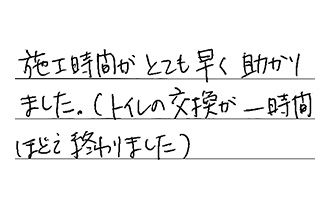 施工時間がとても早く助かり
ました。(トイレの交換が一時間
ほどで終わりました)